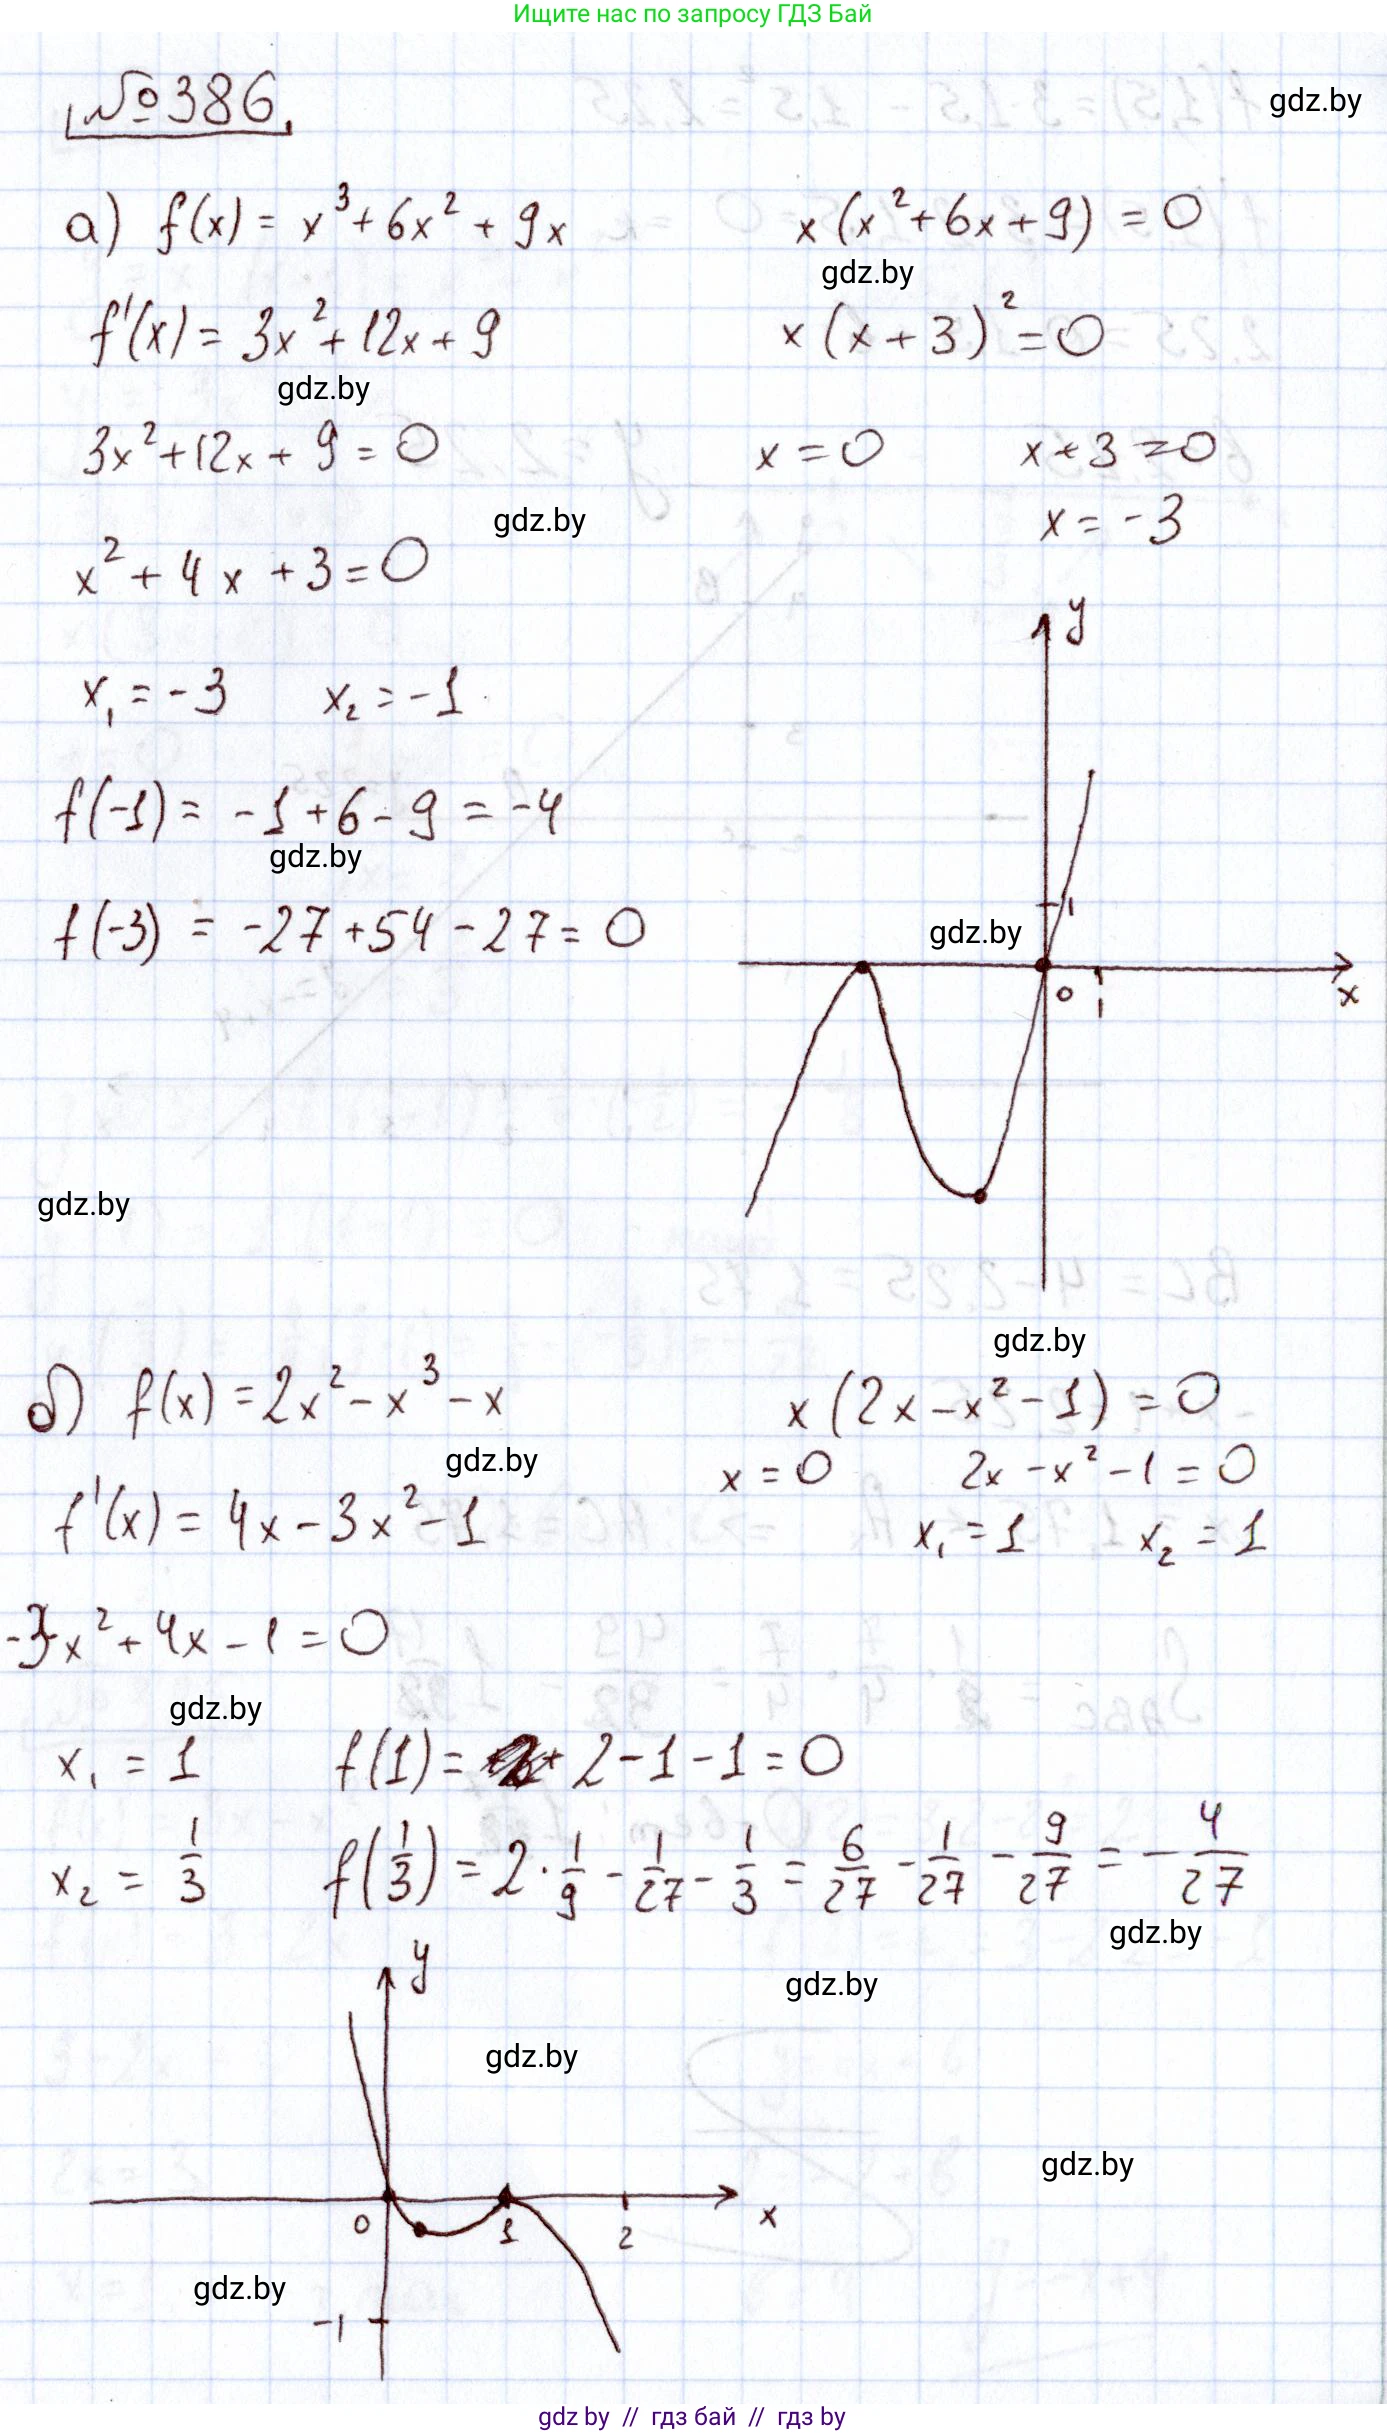 Ищите нас по запросу ГДЗ Бай
№386.
gdz.by
а) f(x) = x³ + 6x² + 9x
x(x² + 6x + 9) = 0
gdz.by
f'(x) = 3x² + 12x + 9
x(x + 3)² = 0
gdz.by
3x² + 12x + 9 = 0
x = 0 x + 3 = 0
x = -3
gdz.by
x² + 4x + 3 = 0
y
x₁ = -3 x₂ = -1
f(-1) = -1 + 6 - 9 = -4
gdz.by
f(-3) = -27 + 54 - 27 = 0
1
gdz.by
0 1 x
gdz.by
gdz.by
б) f(x) = 2x² - x³ - x
x(2x - x² - 1) = 0
gdz.by
x = 0 2x - x² - 1 = 0
f'(x) = 4x - 3x² - 1
x₁ = 1 x₂ = 1
-3x² + 4x - 1 = 0
gdz.by
x₁ = 1 f(1) = 2 - 1 - 1 = 0
x₂ = 1/3 f(1/3) = 2 · 1/9 - 1/27 - 1/3 = 6/27 - 1/27 - 9/27 = - 4/27
gdz.by
y
gdz.by
gdz.by
gdz.by
0 1 2 x
gdz.by
-1
gdz by // гдз бай // гдз by